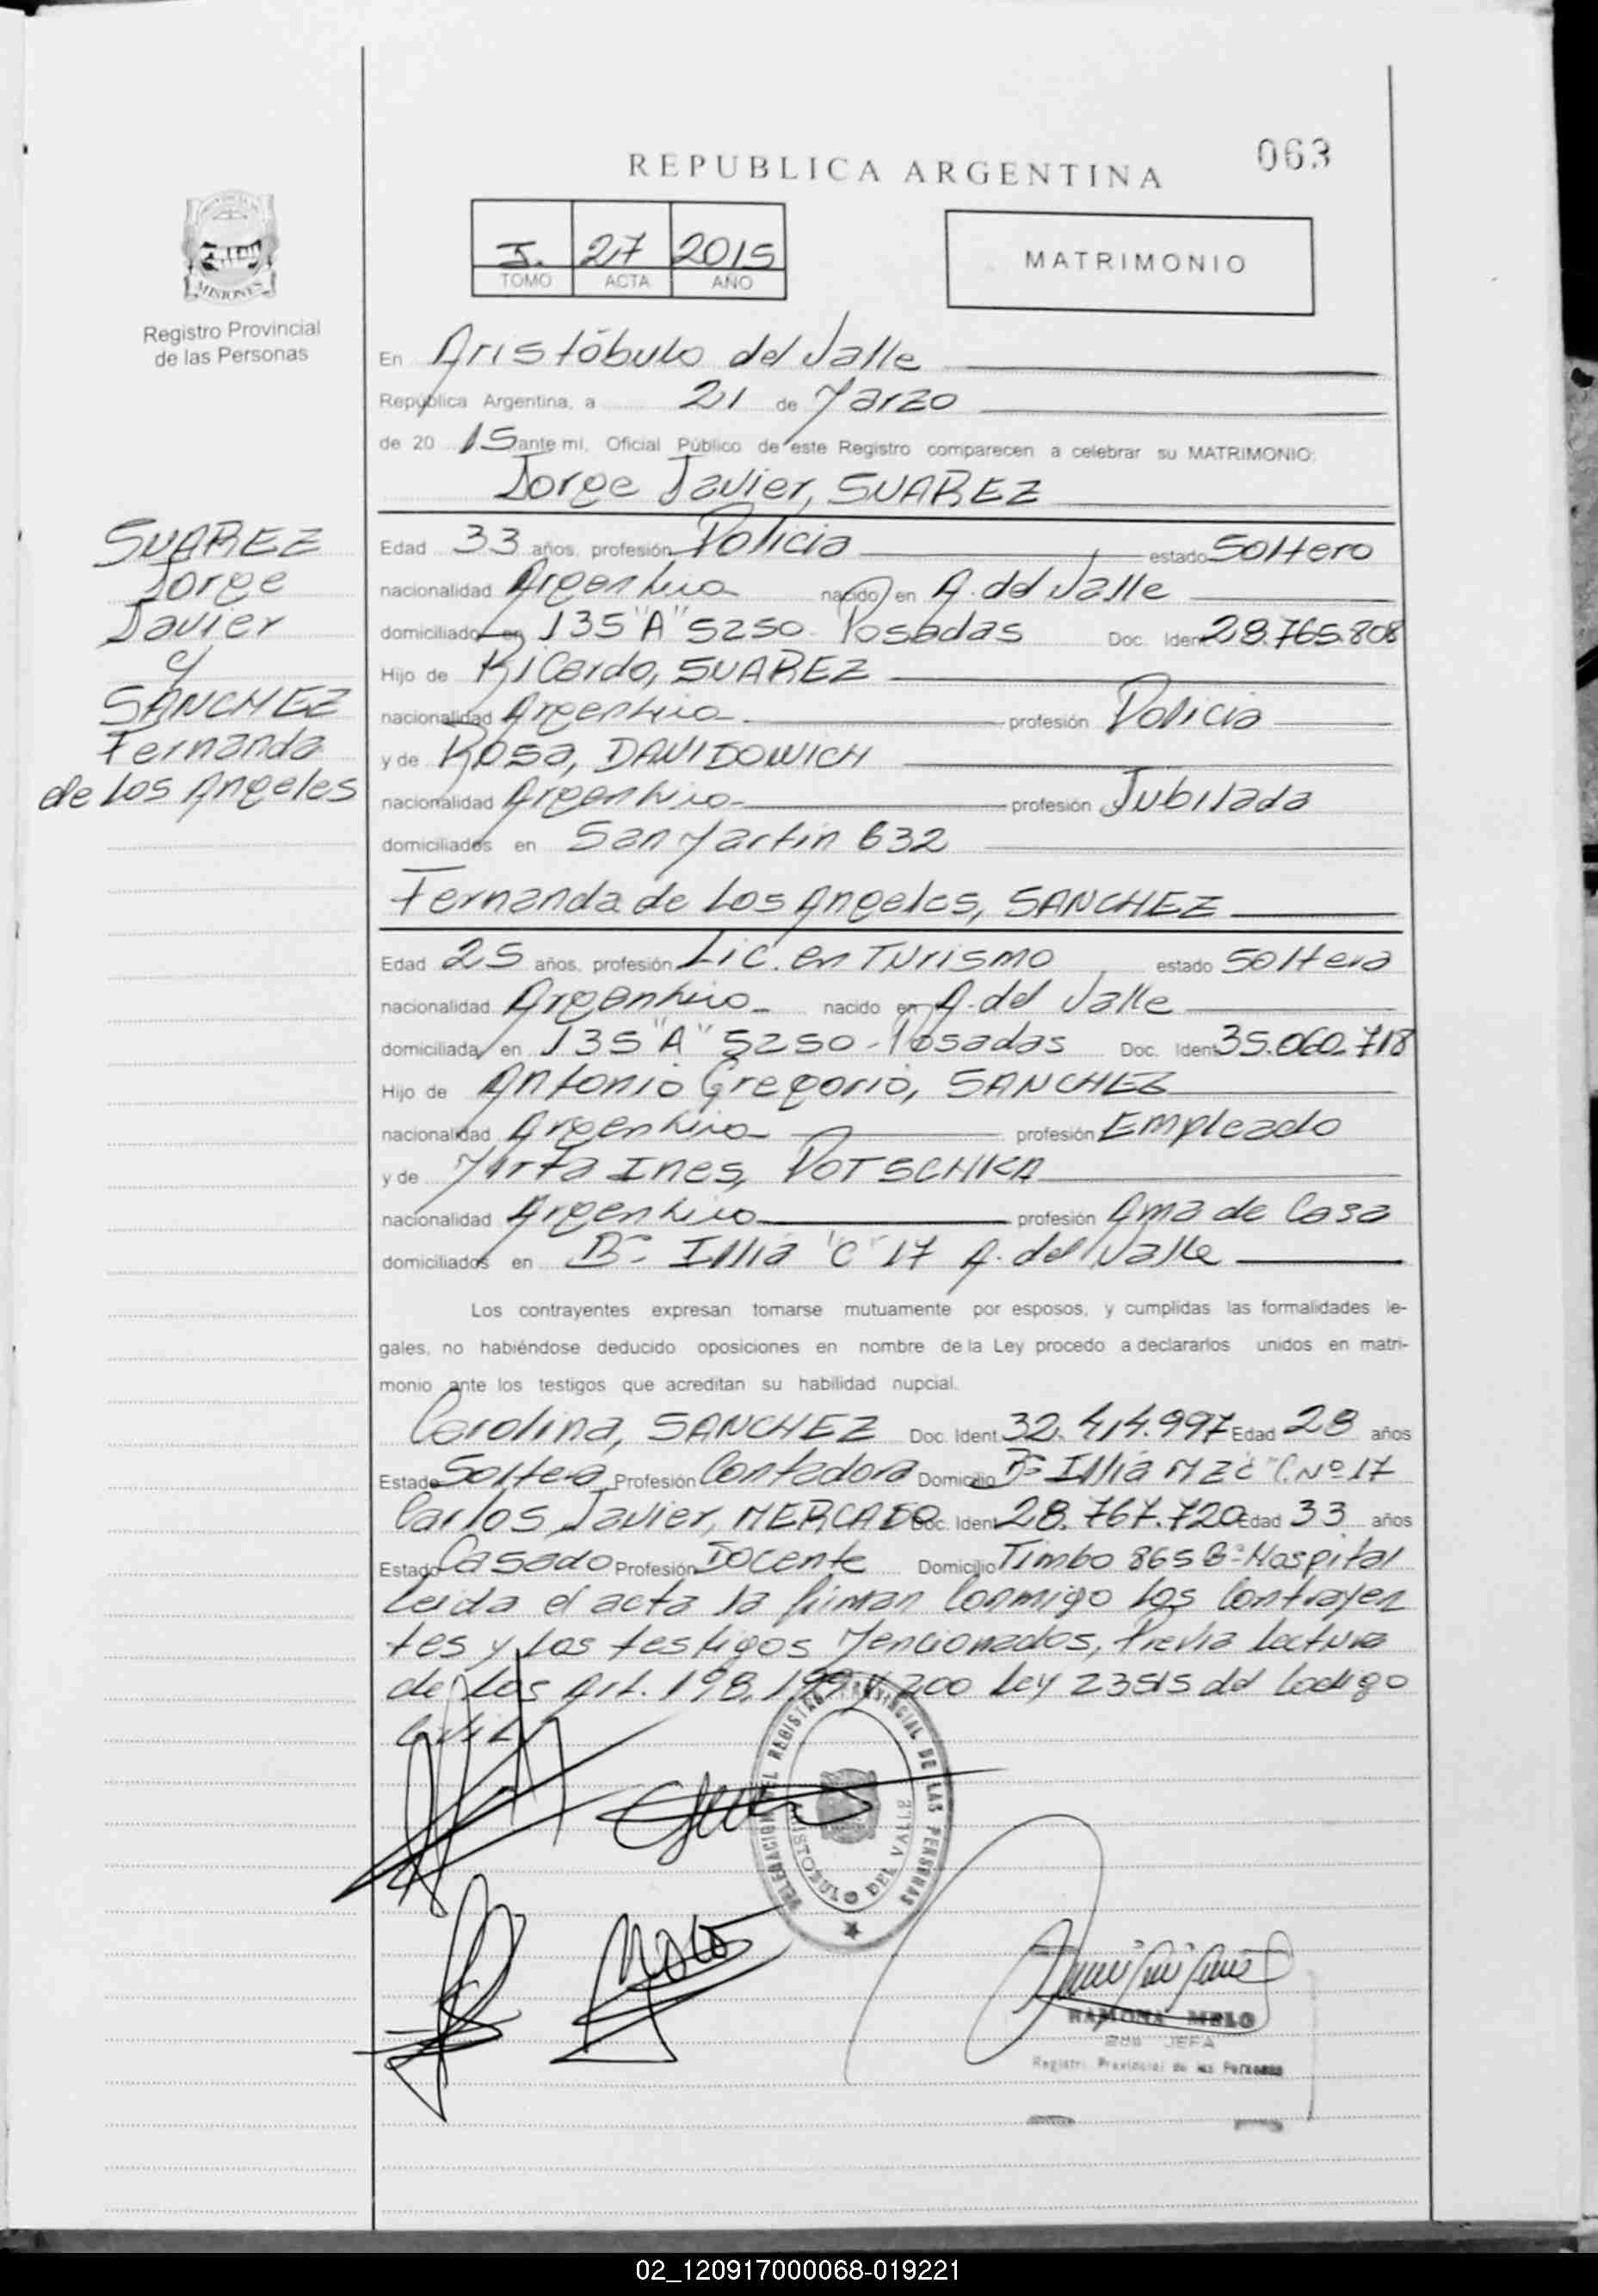 063
REPUBLICA ARGENTINA
I. 27 2015
TOMO ACTA AÑO
MATRIMONIO
MISIONES
Registro Provincial
de las Personas
En Aristóbulo del Valle
República Argentina, a 21 de Marzo
de 20 15 ante mi, Oficial Público de este Registro comparecen a celebrar su MATRIMONIO:
Jorge Javier, SUAREZ
SUAREZ
Jorge
Javier
y
SANCHEZ
Fernanda
de Los Angeles
Edad 33 años, profesión Policia estado Soltero
nacionalidad Argentina nacido en A. del Valle
domiciliado en 135 "A" 5250 - Posadas Doc. Ident. 28.765.808
Hijo de Ricardo, SUAREZ
nacionalidad Argentina profesión Policia
y de Rosa, DAVIDOWICH
nacionalidad Argentina profesión Jubilada
domiciliados en San Martin 632
Fernanda de Los Angeles, SANCHEZ
Edad 25 años, profesión Lic. en Turismo estado Soltera
nacionalidad Argentina nacido en A. del Valle
domiciliada en 135 "A" 5250 - Posadas Doc. Ident. 35.060.718
Hijo de Antonio Gregorio, SANCHEZ
nacionalidad Argentina profesión Empleado
y de Mirta Ines, POTSCHKA
nacionalidad Argentina profesión Ama de Casa
domiciliados en B° Illia "C" 17 A. del Valle
Los contrayentes expresan tomarse mutuamente por esposos, y cumplidas las formalidades le-
gales, no habiéndose deducido oposiciones en nombre de la Ley procedo a declararlos unidos en matri-
monio ante los testigos que acreditan su habilidad nupcial.
Carolina, SANCHEZ Doc. Ident. 32.414.997 Edad 28 años
Estado Soltera Profesión Contadora Domicilio B° Illia Mz "C" C. Nº 17
Carlos Javier, MERCADO Doc. Ident. 28.767.720 Edad 33 años
Estado Casado Profesión Docente Domicilio Timbo 865 B° Hospital
Leida el acta la firman Conmigo Los Contrayen
tes y Los testigos Mencionados, Previa Lectura
de Los Art. 198, 199 y 200 Ley 23515 del Codigo
Civil
DELEGACION DEL REGISTRO PROVINCIAL DE LAS PERSONAS
ARISTOBULO DEL VALLE
RAMONA MELO
JEFA
Registro Provincial de las Personas
02_120917000068-019221